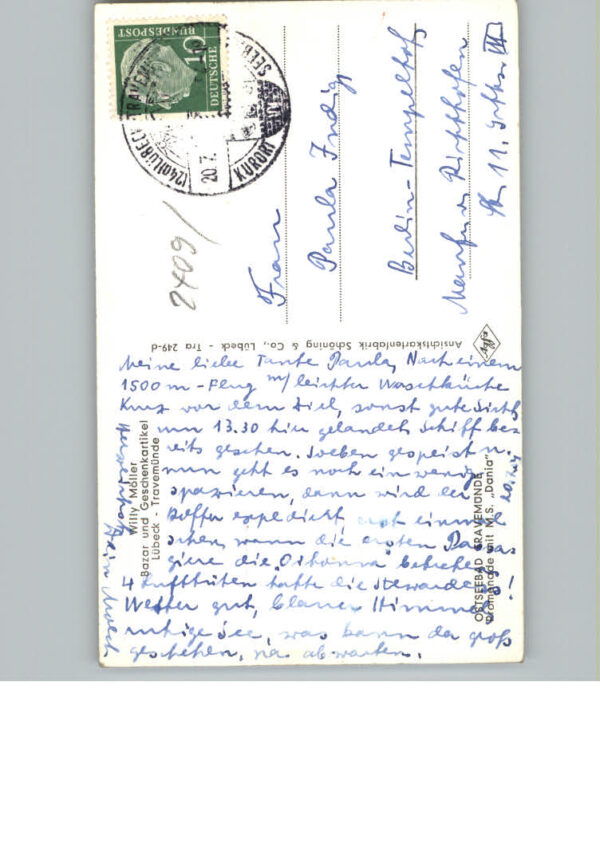 DEUTSCHE
BUNDESPOST
10
(24b) LÜBECK-TRAVEM
20.7.
KURORT
SEEB
2409/
Frau
Paula Indig
Berlin-Tempelhof
Manfr. v. Richthofen
Str. 11. Gths. III
Ansichtskartenfabrik Schöning & Co., Lübeck - Tra 249-d
Willy Möller
Bazar und Geschenkartikel
Lübeck - Travemünde
OSTSEEBAD TRAVEMÜNDE
Promenade mit M.S. „Dania"
Meine liebe Tante Paula, Nach einem
1500 m - Flug m/ leichter Waschküche
Kurz vor dem Ziel, sonst gute Sicht
um 13.30 hier gelandet, Schiff bereits
gesehen. Soeben gespeist u.
nun geht es noch ein wenig
spazieren, dann wird der
Koffer expediert, erst einmal
sehen, wann die ersten Passa
giere die betreten
4 Lufttüten hatte die Stewardess!
Wetter gut, blauer Himmel
ruhige See, was kann da groß
geschehen, na abwarten.
Herzlichst Dein